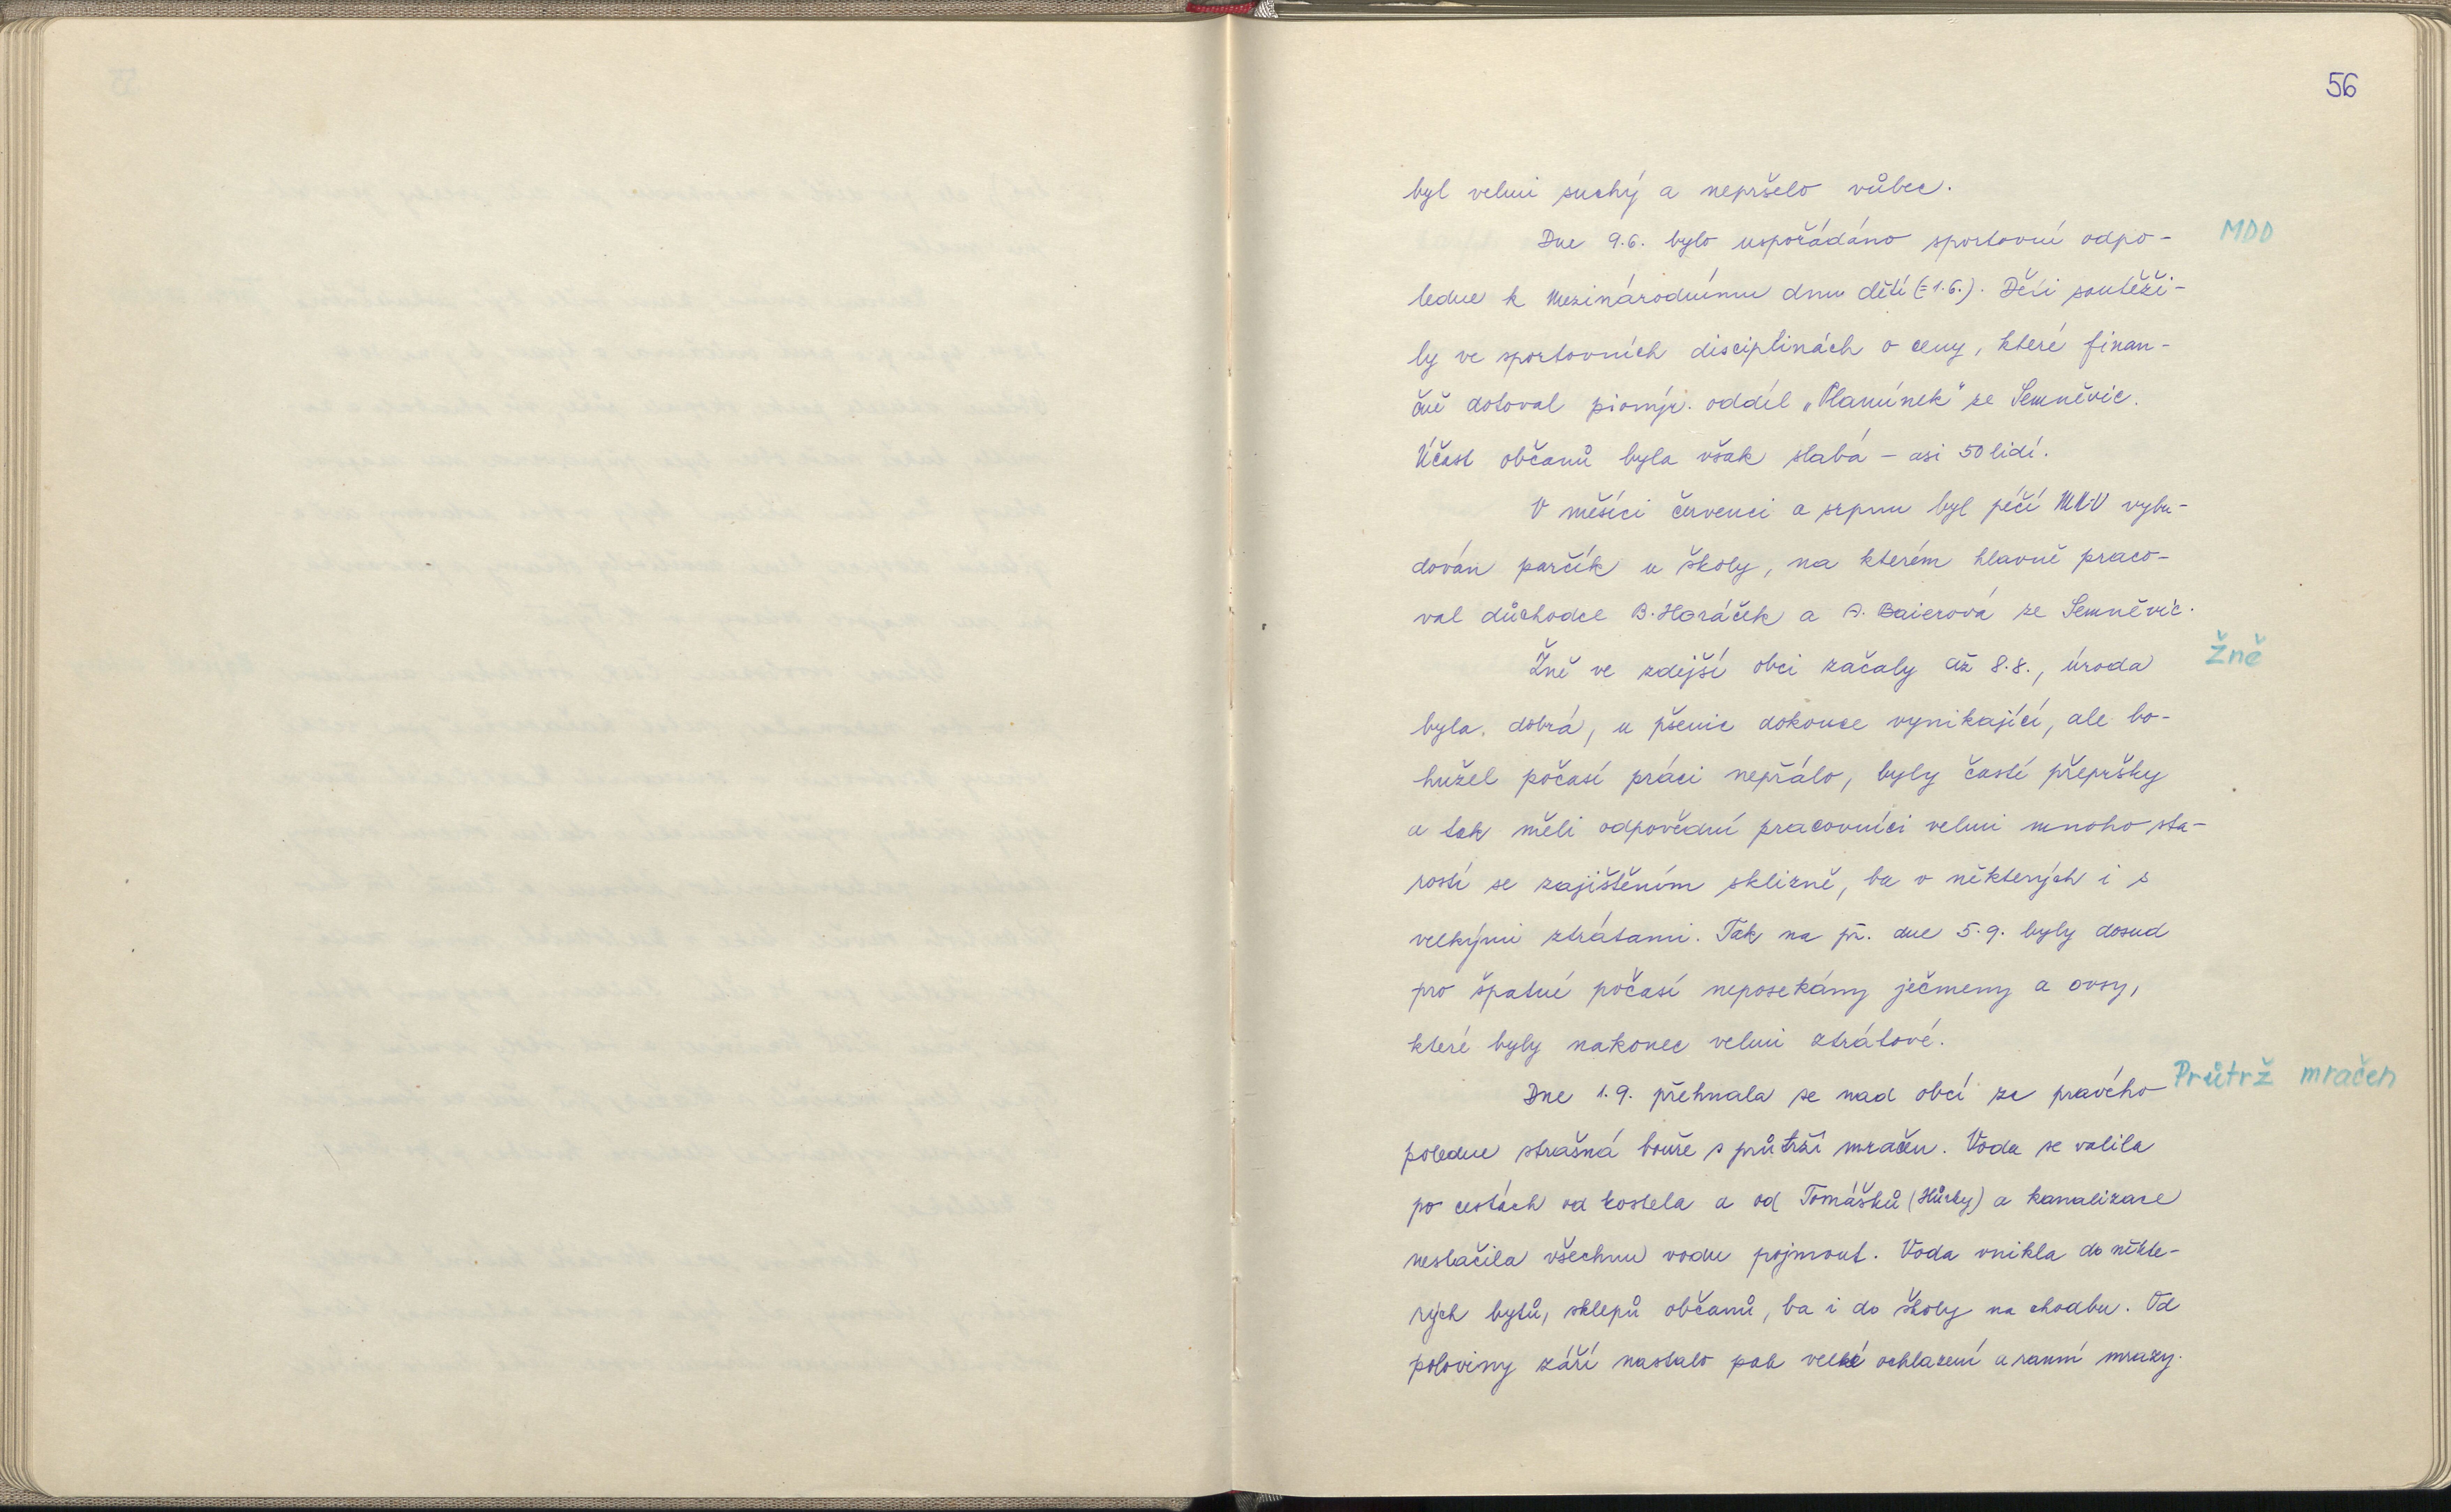 56
byl velmi suchý a nepršelo vůbec.
Dne 9.6. bylo uspořádáno sportovní odpo-
MDD
ledne k Mezinárodnímu dnu dětí (=1.6.). Děti soutěži-
ly ve sportovních disciplinách o ceny, které finan-
čně dotoval pionýr. oddíl „Plamínek" ze Semněvic.
Účast občanů byla však slabá – asi 50 lidí.
V měsíci červenci a srpnu byl péčí MNV vybu-
dován parčík u školy, na kterém hlavně praco-
val důchodce B. Horáček a A. Baierová ze Semněvic.
Žně ve zdejší obci začaly až 8.8., úroda
Žně
byla dobrá, u pšenic dokonce vynikající, ale bo-
hužel počasí práci nepřálo, byly časté přepršky
a tak měli odpovědní pracovníci velmi mnoho sta-
rostí se zajištěním sklizně, ba v některých i s
velkými ztrátami. Tak na př. dne 5.9. byly dosud
pro špatné počasí neposekány ječmeny a ovsy,
které byly nakonec velmi ztrátové.
Průtrž mračen
Dne 1.9. přehnala se nad obcí ze pravého
poledne strašná bouře s průtrží mračen. Voda se valila
po cestách od kostela a od Tomášků (Hůrky) a kanalizace
nestačila všechnu vodu pojmout. Voda vnikla do někte-
rých bytů, sklepů občanů, ba i do školy na chodbu. Od
poloviny září nastalo pak velké ochlazení a ranní mrazy.